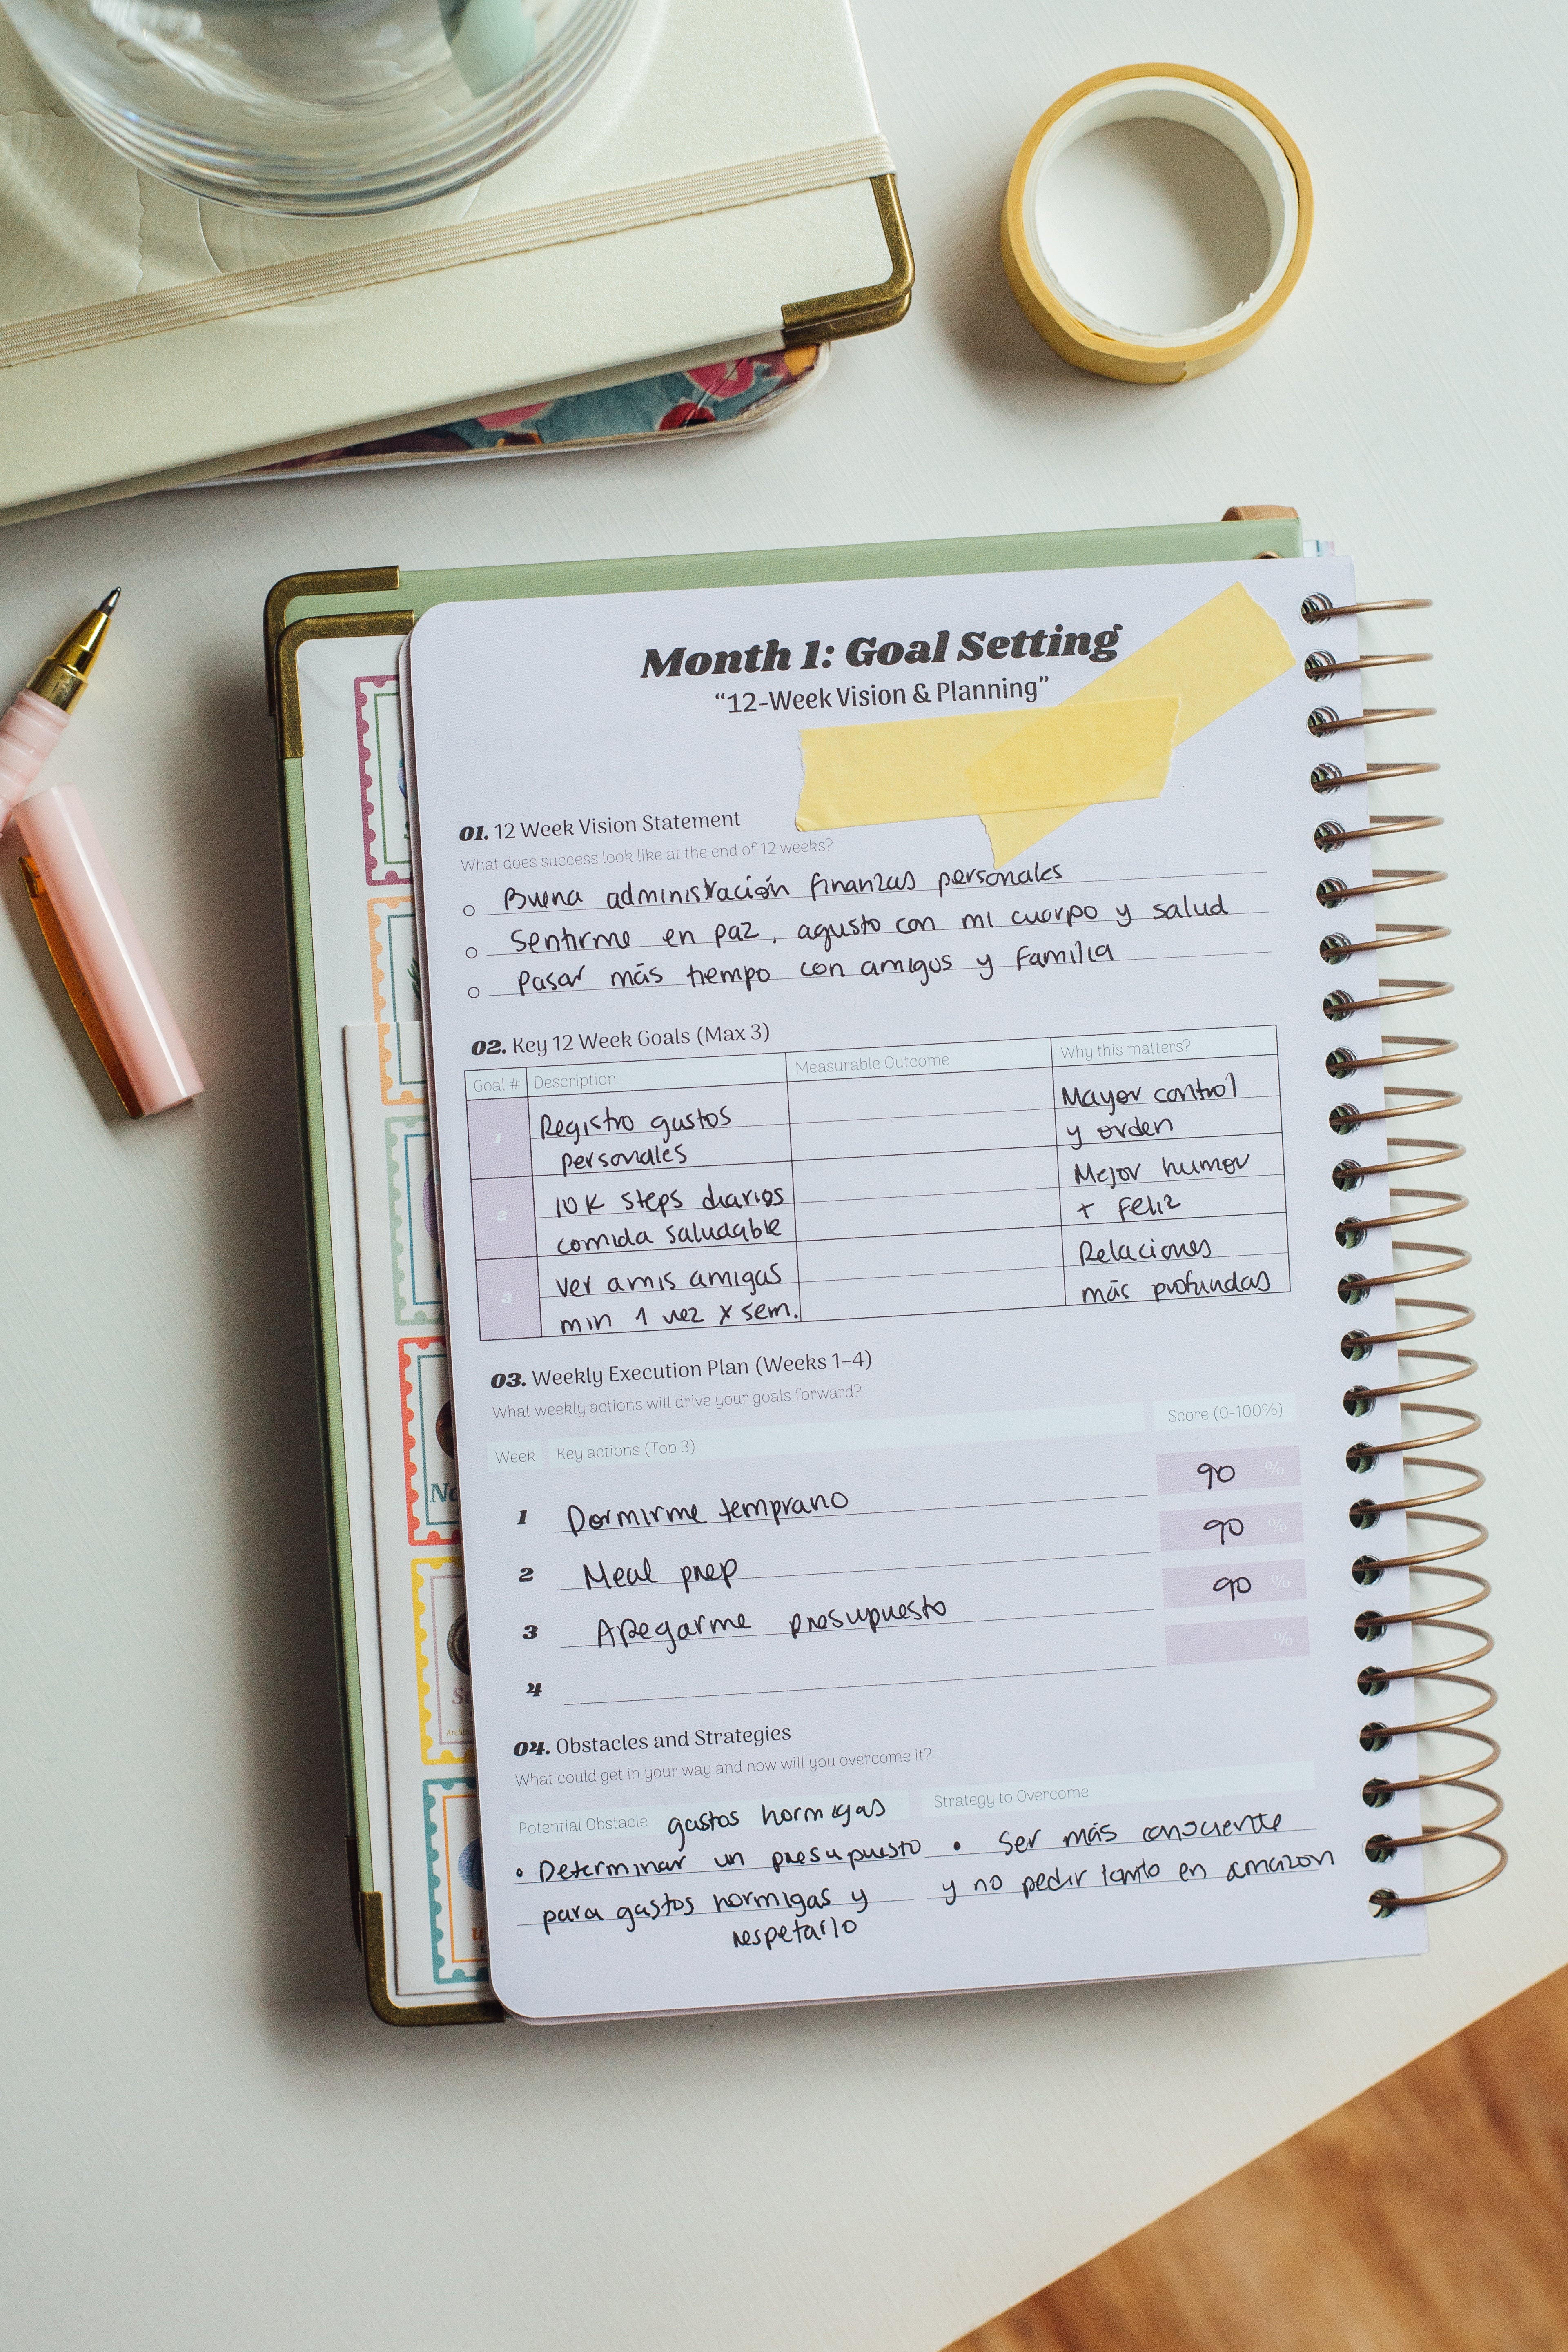 Month 1: Goal Setting
“12-Week Vision & Planning”
01. 12 Week Vision Statement
What does success look like at the end of 12 weeks?
Buena administración finanzas personales
Sentirme en paz, agusto con mi cuerpo y salud
Pasar más tiempo con amigos y familia
02. Key 12 Week Goals (Max 3)
Goal # Description Measurable Outcome Why this matters?
1 Registro gastos Mayor control
personales y orden
2 10K steps diarios Mejor humor
comida saludable + Feliz
3 ver amis amigas Relaciones
min 1 vez x sem. más profundas
03. Weekly Execution Plan (Weeks 1-4)
What weekly actions will drive your goals forward?
Week Key actions (Top 3) Score (0-100%)
1 Dormirme temprano 90 %
2 Meal prep 90 %
3 Apegarme presupuesto 90 %
4 %
04. Obstacles and Strategies
What could get in your way and how will you overcome it?
Potential Obstacle gastos hormigas Strategy to Overcome
• Determinar un presupuesto • Ser más consciente
para gastos hormigas y y no pedir tanto en amazon
respetarlo